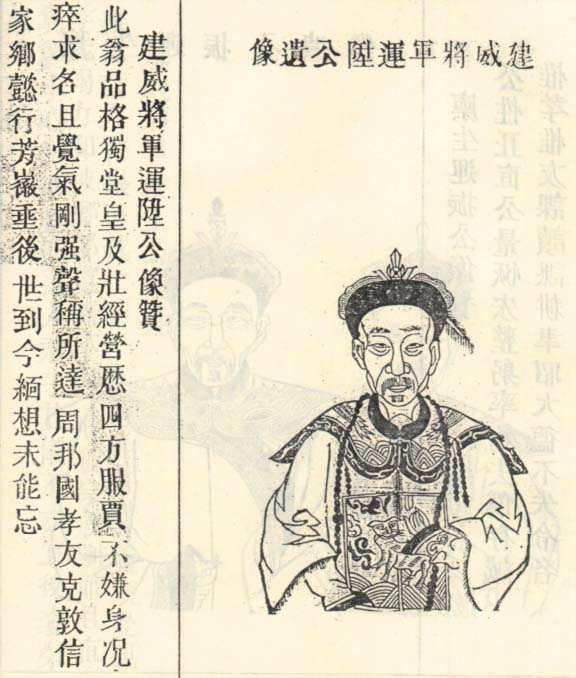 建威將軍運陞公遺像
建威將軍運陞公像贊
此翁品格獨堂皇及壯經營厯四方服賈不嫌身況
瘁求名且覺氣剛强聲稱所達周邦國孝友克敦信
家鄉懿行芳徽垂後世到今緬想未能忘